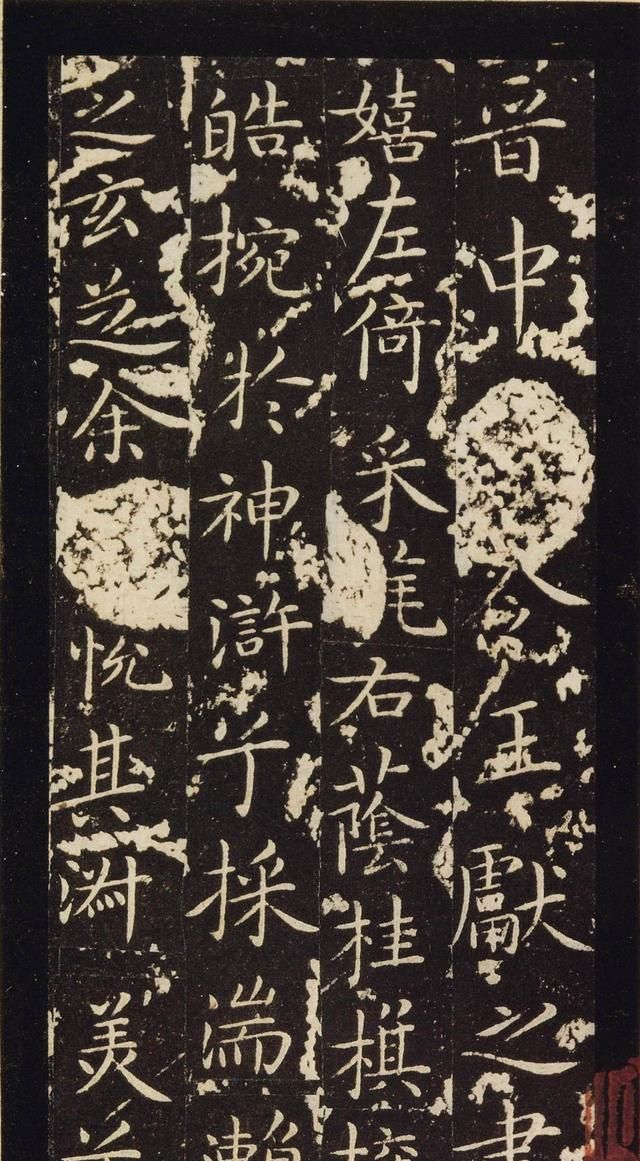 晉中令王獻之書
嬉左倚采旄右蔭桂棋
皓捥於神滸兮採湍瀨
之玄芝余悅其淑美兮